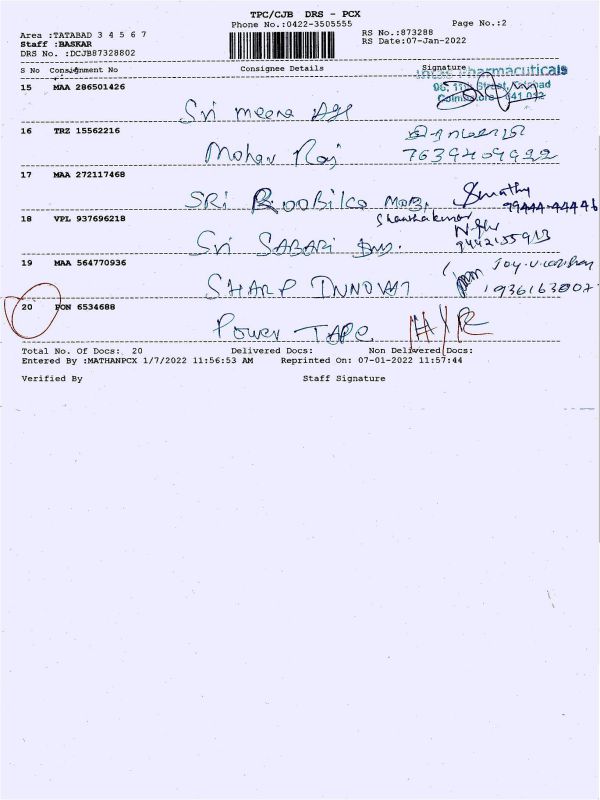 TPC/CJB DRS - PCX
Phone No.:0422-3505555
Page No.:2
Area :TATABAD 3 4 5 6 7
RS No.:873288
Staff :BASKAR
RS Date:07-Jan-2022
DRS No. :DCJB87328802
S No Consignment No Consignee Details Signature
15 MAA 286501426
Sri meena Age
Pharmaceuticals
Street,
Coimbatore 641 012
16 TRZ 15562216
Mohan Raj
7639409922
17 MAA 272117468
SRI
79444-44446
18 VPL 937696218
Sri SABARI
9442155913
19 MAA 564770936
SHARP INNOVAT
20 PON 6534688
Power TAPE
Total No. Of Docs: 20 Delivered Docs: Non Delivered Docs:
Entered By :MATHANPCX 1/7/2022 11:56:53 AM Reprinted On: 07-01-2022 11:57:44
Verified By Staff Signature